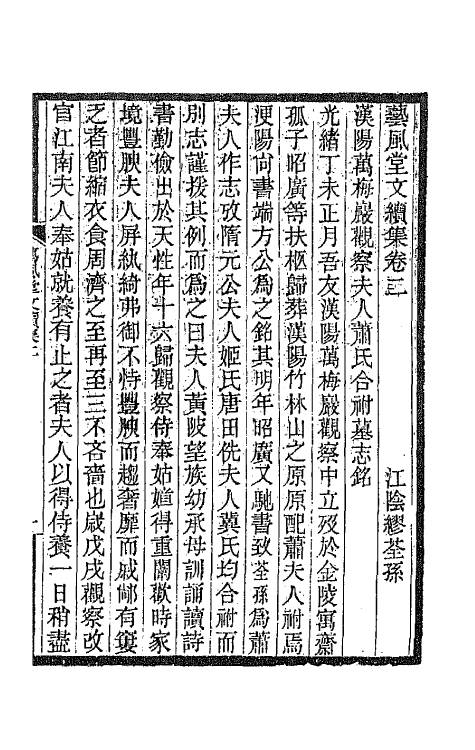 藝風堂文續集卷三
江陰繆荃孫
漢陽萬梅巖觀察夫人蕭氏合祔墓志銘
光緒丁未正月吾友漢陽萬梅巖觀察中立歿於金陵寓齋
孤子昭廣等扶柩歸葬漢陽竹林山之原原配蕭夫人祔焉
浭陽尚書端方公爲之銘其明年昭廣又馳書致荃孫爲蕭
夫人作志攷隋元公夫人姬氏唐田侁夫人冀氏均合祔而
別志謹援其例而爲之曰夫人黃陂望族幼承母訓誦讀詩
書勤儉出於天性年十六歸觀察侍奉姑嫜得重闈歡時家
境豐腴夫人屏紈綺弗御不恃豐腴而趨奢靡而戚鄰有窶
乏者節縮衣食周濟之至再至三不吝嗇也歲戊戌觀察改
官江南夫人奉姑就養有止之者夫人以得侍養一日稍盡